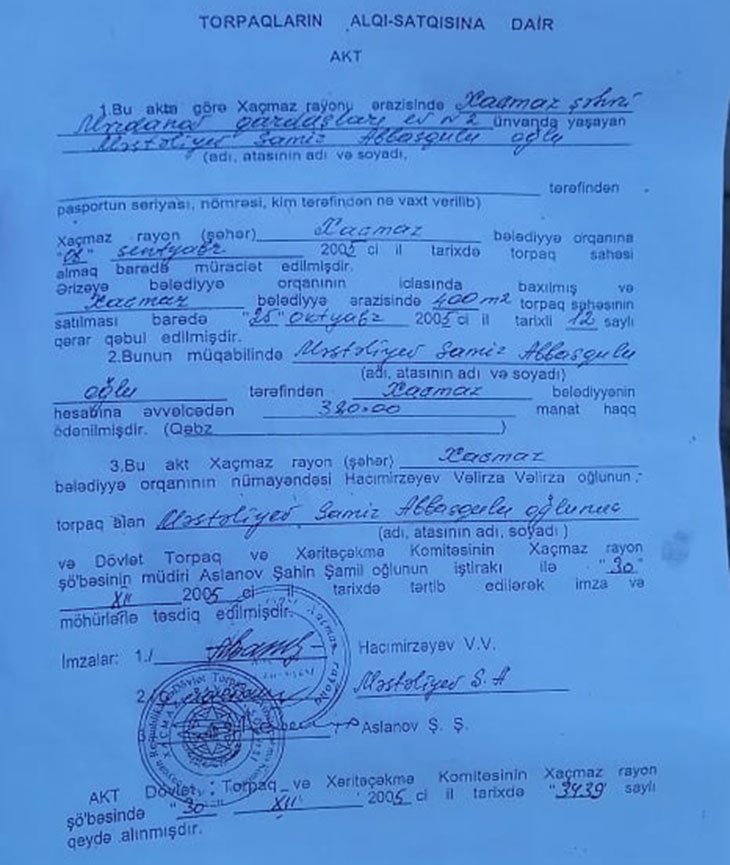 TORPAQLARIN ALQI-SATQISINA DAİR
AKT
1.Bu akta görə Xaçmaz rayonu ərazisində Xaçmaz şəhri
qardaşları ev N2 ünvanda yaşayan
Məstəliyev Samir Abbasqulu oğlu
(adı, atasının adı və soyadı,
tərəfindən
pasportun seriyası, nömrəsi, kim tərəfindən nə vaxt verilib)
Xaçmaz rayon (şəhər) Xaçmaz bələdiyyə orqanına
"08" sentyabr 2005 ci il tarixdə torpaq sahəsi
almaq barədə müraciət edilmişdir.
Ərizəyə bələdiyyə orqanının iclasında baxılmış və
Xaçmaz bələdiyyə ərazisində 400 m2 torpaq sahəsinin
satılması barədə "25" oktyabr 2005 ci il tarixli 12 saylı
qərar qəbul edilmişdir.
2.Bunun müqabilində Məstəliyev Samir Abbasqulu
(adı, atasının adı və soyadı)
oğlu tərəfindən Xaçmaz bələdiyyənin
hesabına əvvəlcədən 380.00 manat haqq
ödənilmişdir. (Qəbz )
3.Bu akt Xaçmaz rayon (şəhər) Xaçmaz
bələdiyyə orqanının nümayəndəsi Hacımirzəyev Vəlirza Vəlirza oğlunun
torpaq alan Məstəliyev Samir Abbasqulu oğlunun
(adı, atasının adı, soyadı )
və Dövlət Torpaq və Xəritəçəkmə Komitəsinin Xaçmaz rayon
şö'bəsinin müdiri Aslanov Şahin Şamil oğlunun iştirakı ilə "30"
XII 2005 ci il tarixdə tərtib edilərək imza və
möhürlərlə təsdiq edilmişdir.
İmzalar: 1./ Hacımirzəyev V.V.
2. Məstəliyev S.A
Aslanov Ş. Ş.
AKT Dövlət Torpaq və Xəritəçəkmə Komitəsinin Xaçmaz rayon
şö'bəsində "30" XII 2005 ci il tarixdə "3439" saylı
qeydə alınmışdır.